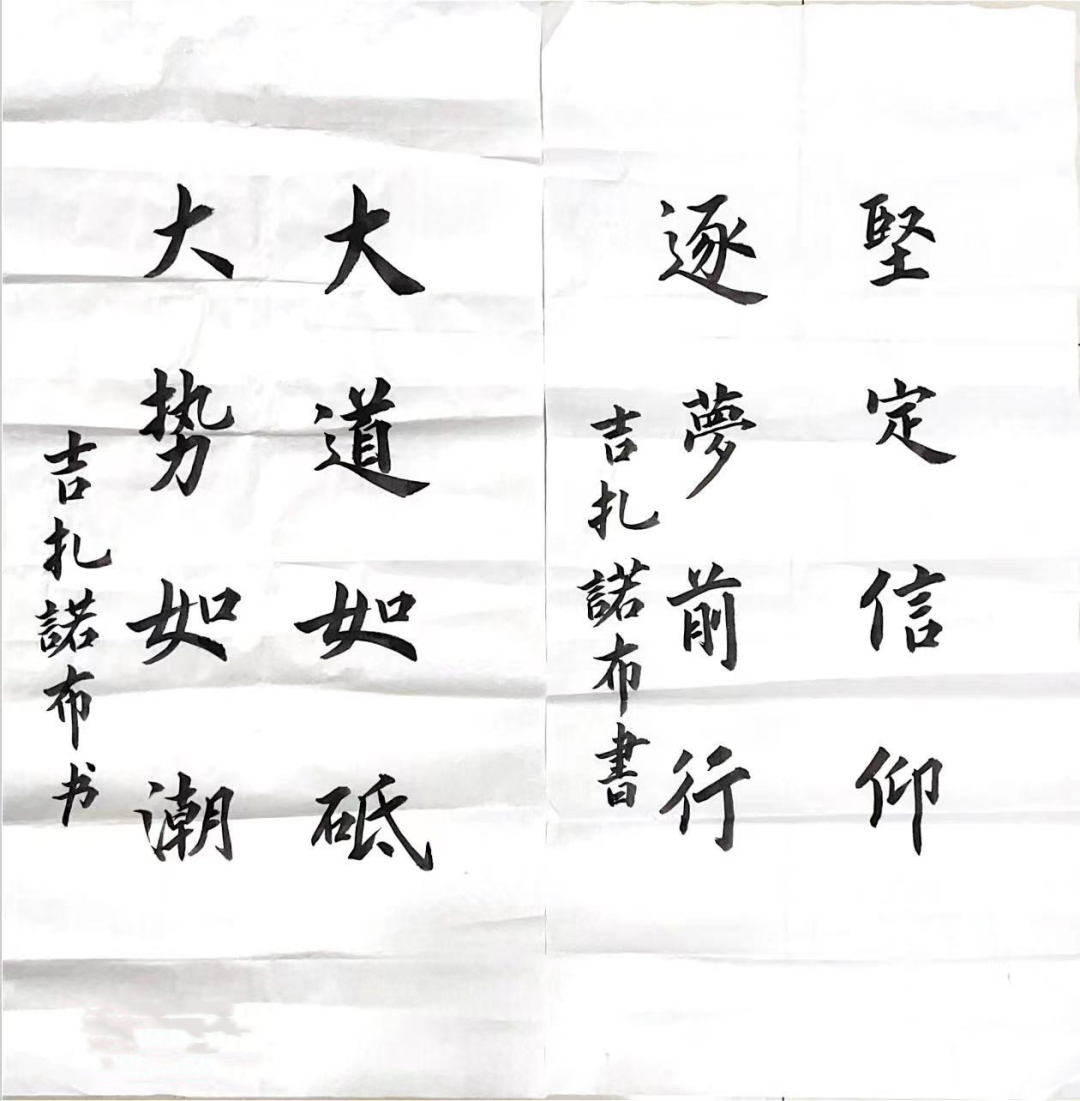 堅定信仰
逐夢前行
吉扎諾布書
大道如砥
大势如潮
吉扎諾布书